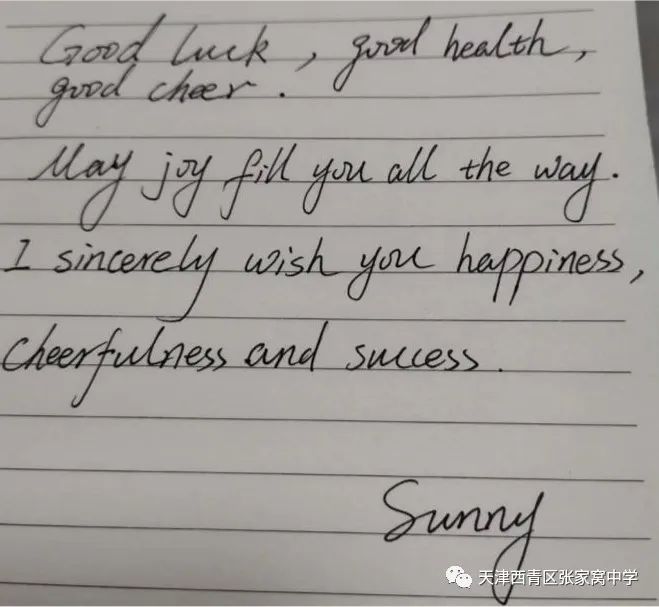 Good luck, good health,
good cheer.
May joy fill you all the way.
I sincerely wish you happiness,
cheerfulness and success.
Sunny
天津西青区张家窝中学